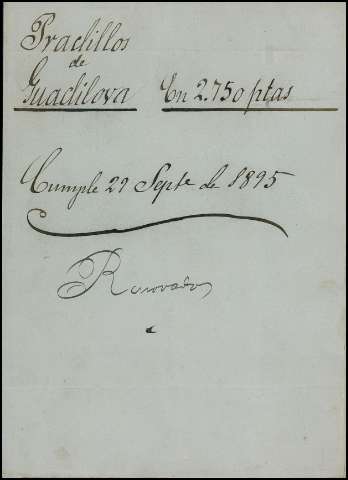 Pradillos
de
Guadilova En 2.750 ptas
Cumple 29 Septe de 1895
Renovado